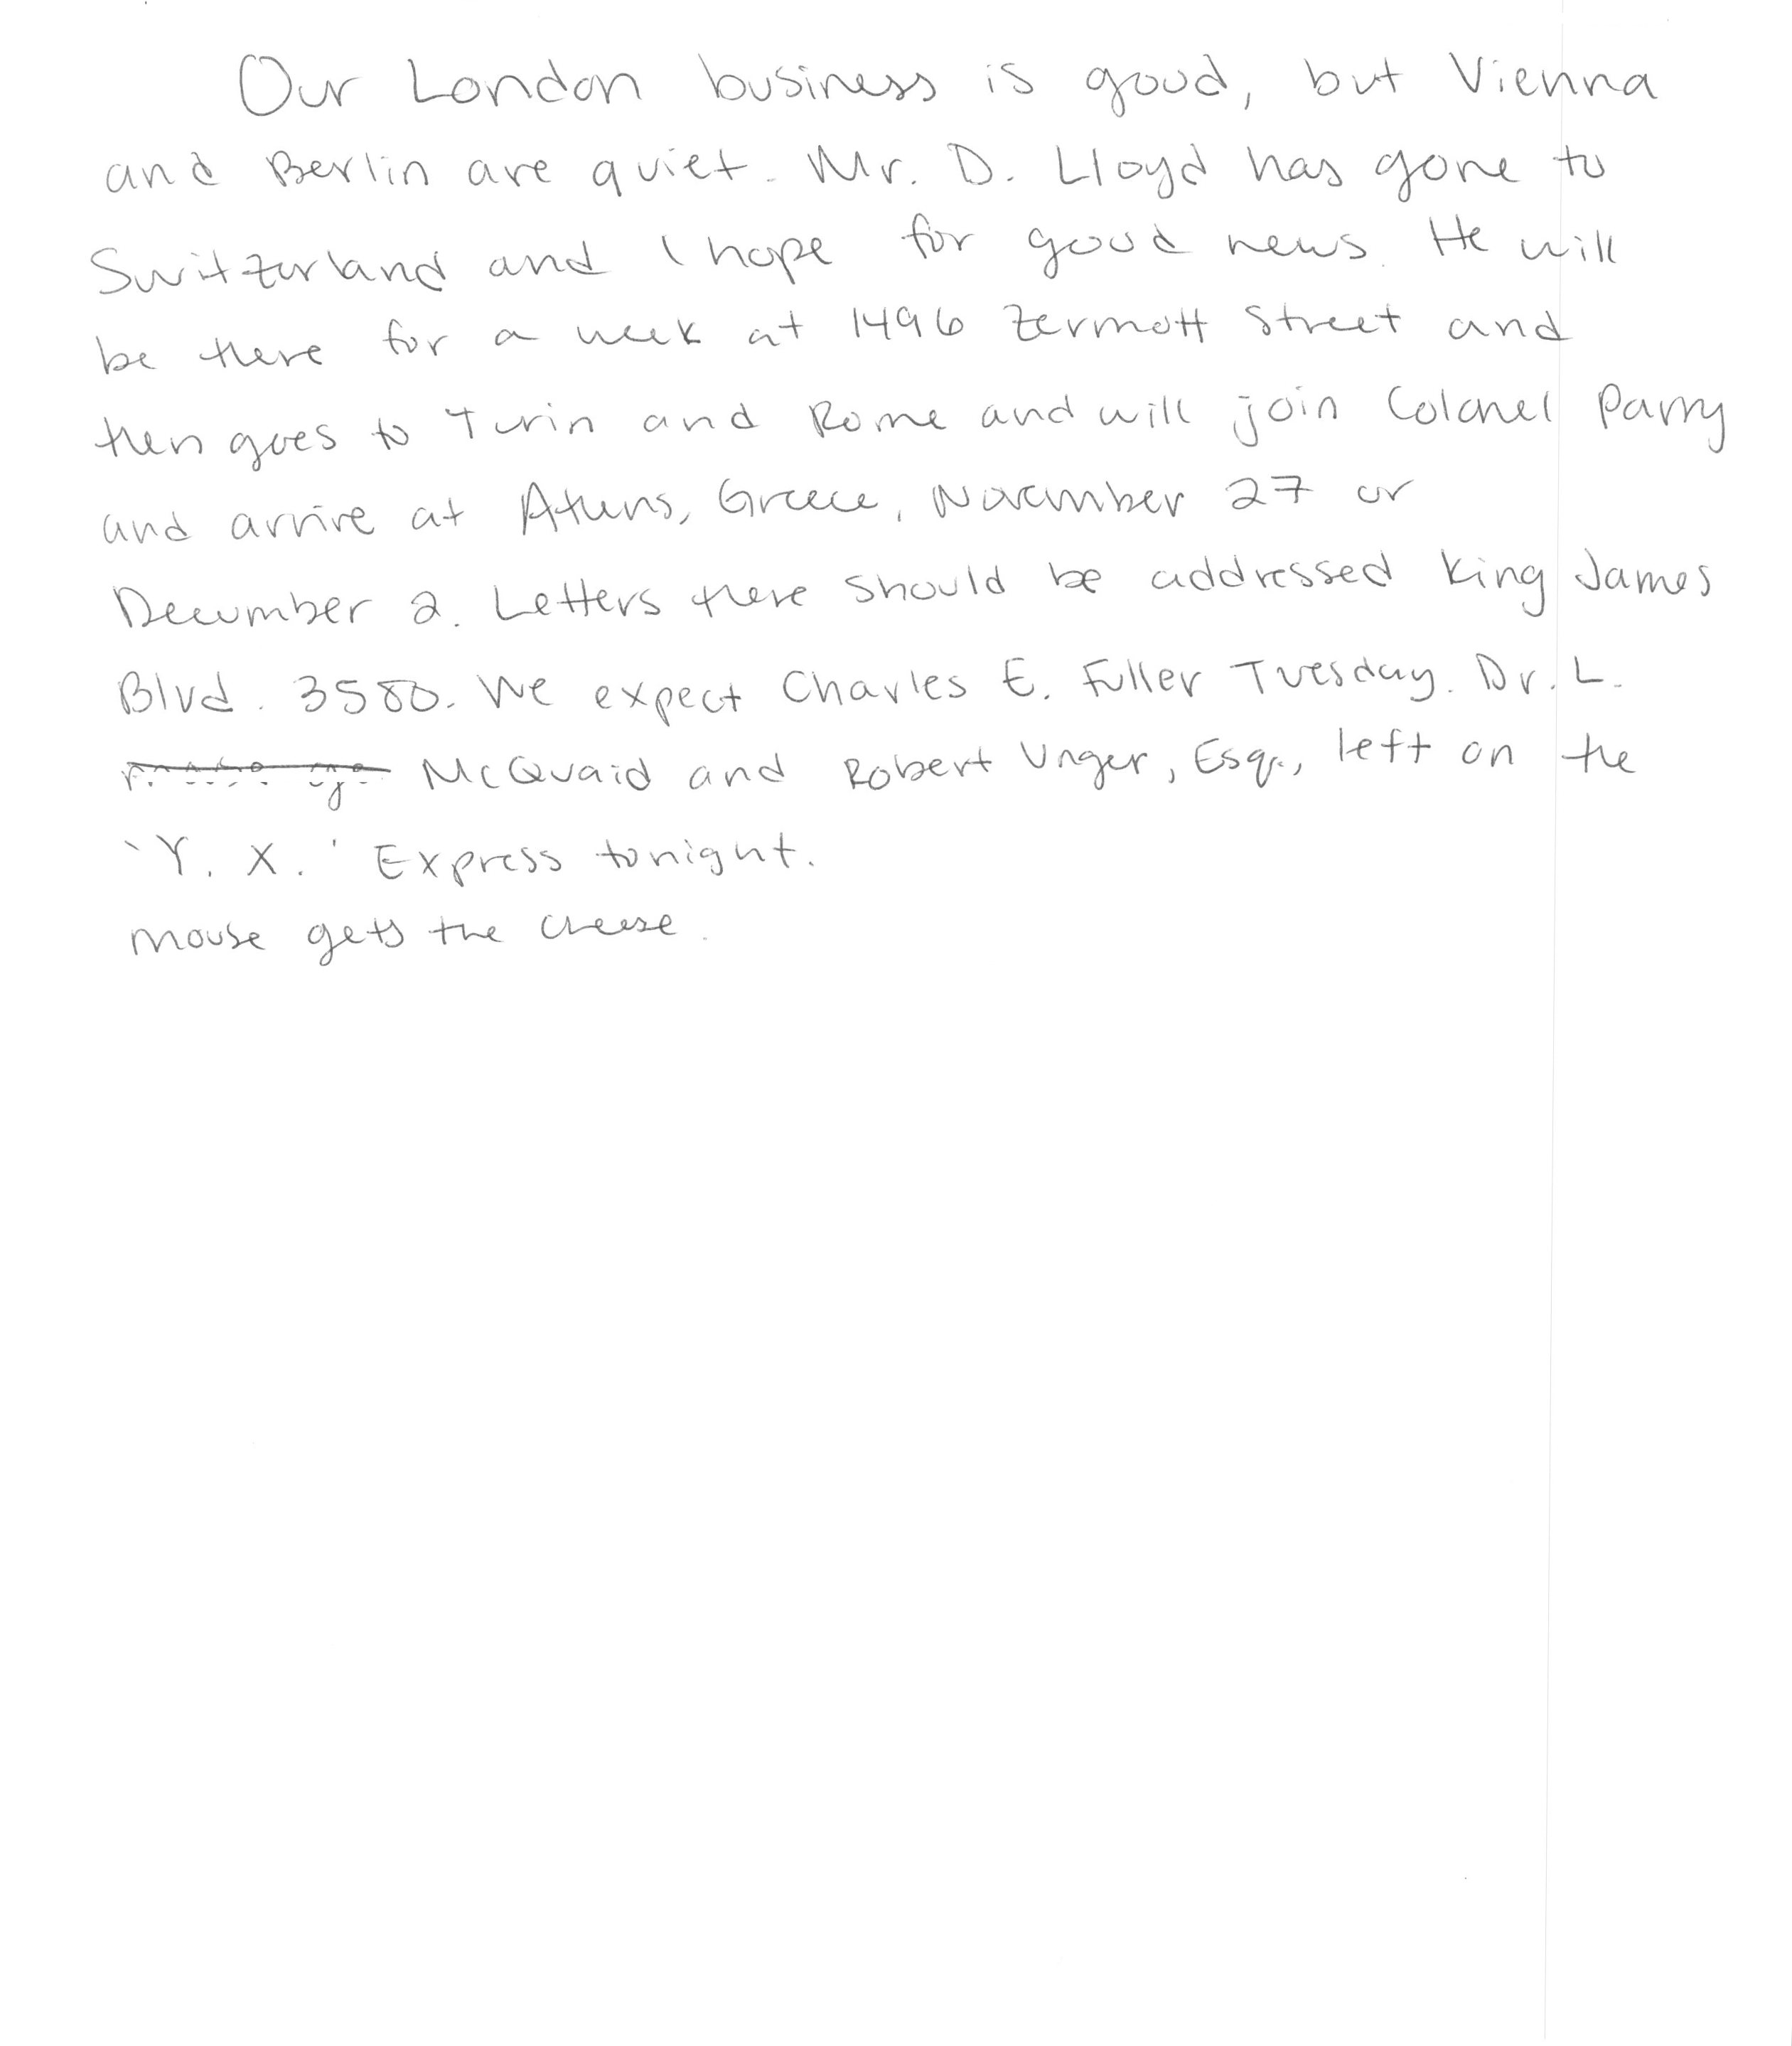 Our London business is good, but Vienna
and Berlin are quiet. Mr. D. Lloyd has gone to
Switzerland and I hope for good news. He will
be there for a week at 1496 Zermott Street and
then goes to Turin and Rome and will join Colonel Parry
and arrive at Athens, Greece, November 27 or
December 2. Letters there should be addressed King James
Blvd. 3580. We expect Charles E. Fuller Tuesday. Dr. L.
McQuaid and Robert Unger, Esq., left on the
'Y. X.' Express tonight.
mouse gets the cheese.